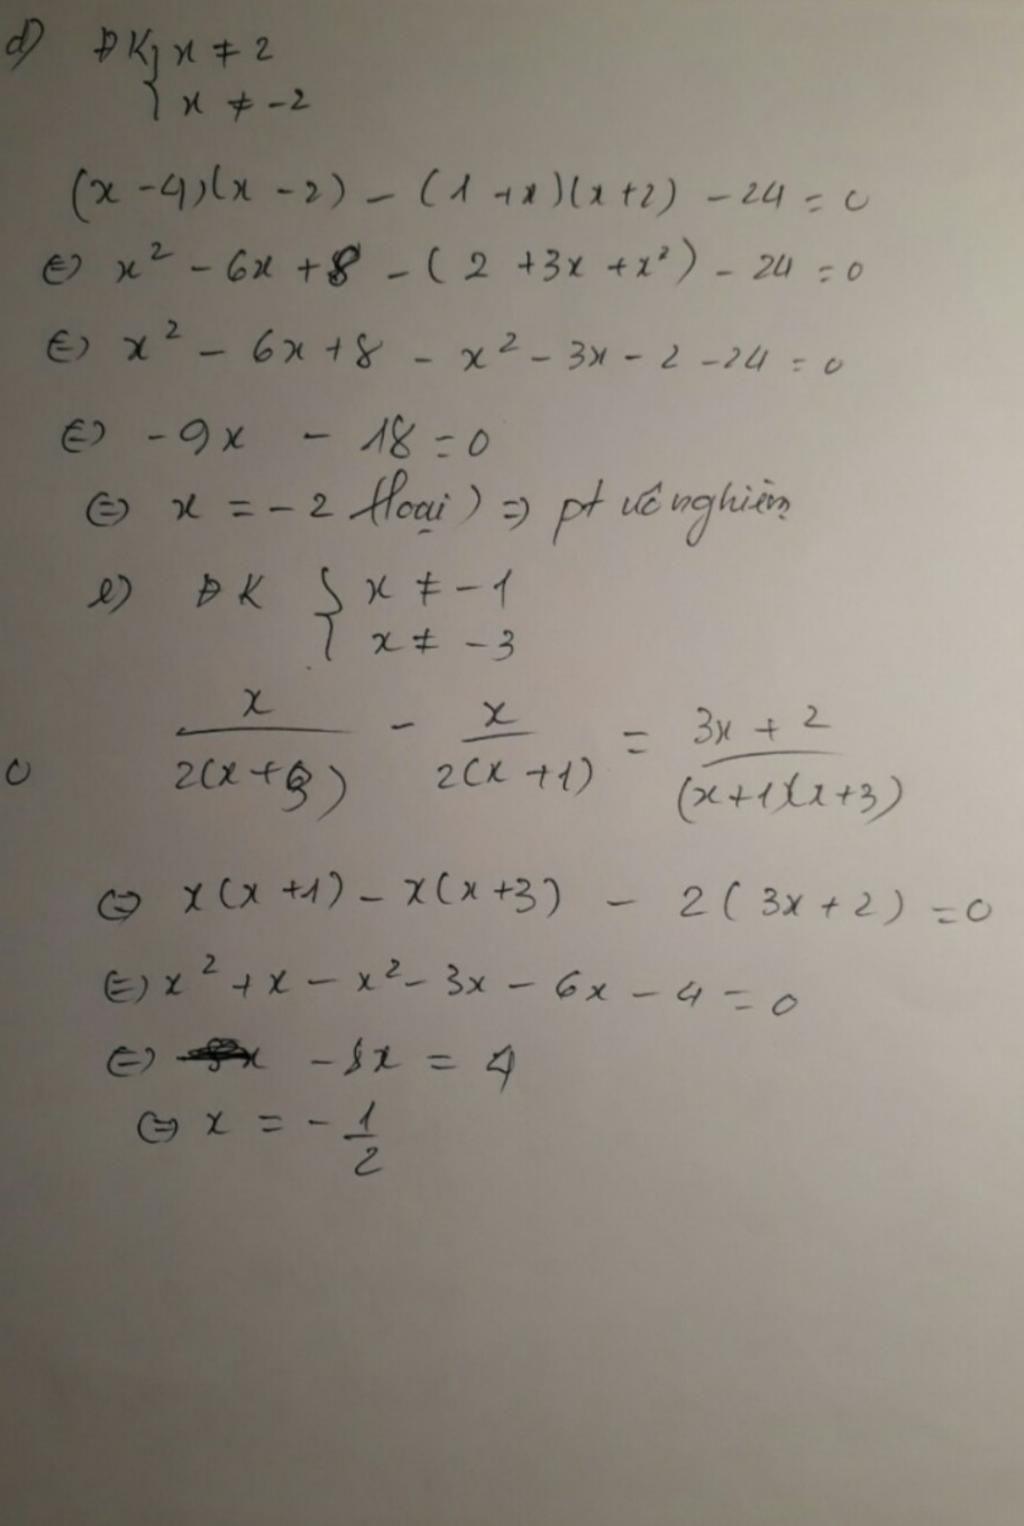 d) ĐK { x ≠ 2
{ x ≠ -2
(x - 4)(x - 2) - (1 + x)(x + 2) - 24 = 0
⇔ x² - 6x + 8 - (2 + 3x + x²) - 24 = 0
⇔ x² - 6x + 8 - x² - 3x - 2 - 24 = 0
⇔ -9x - 18 = 0
⇔ x = -2 (loại) ⇒ pt vô nghiệm
e) ĐK { x ≠ -1
{ x ≠ -3
x/(2(x+3)) - x/(2(x+1)) = (3x+2)/((x+1)(x+3))
⇔ x(x+1) - x(x+3) - 2(3x+2) = 0
⇔ x² + x - x² - 3x - 6x - 4 = 0
⇔ -8x = 4
⇔ x = -1/2